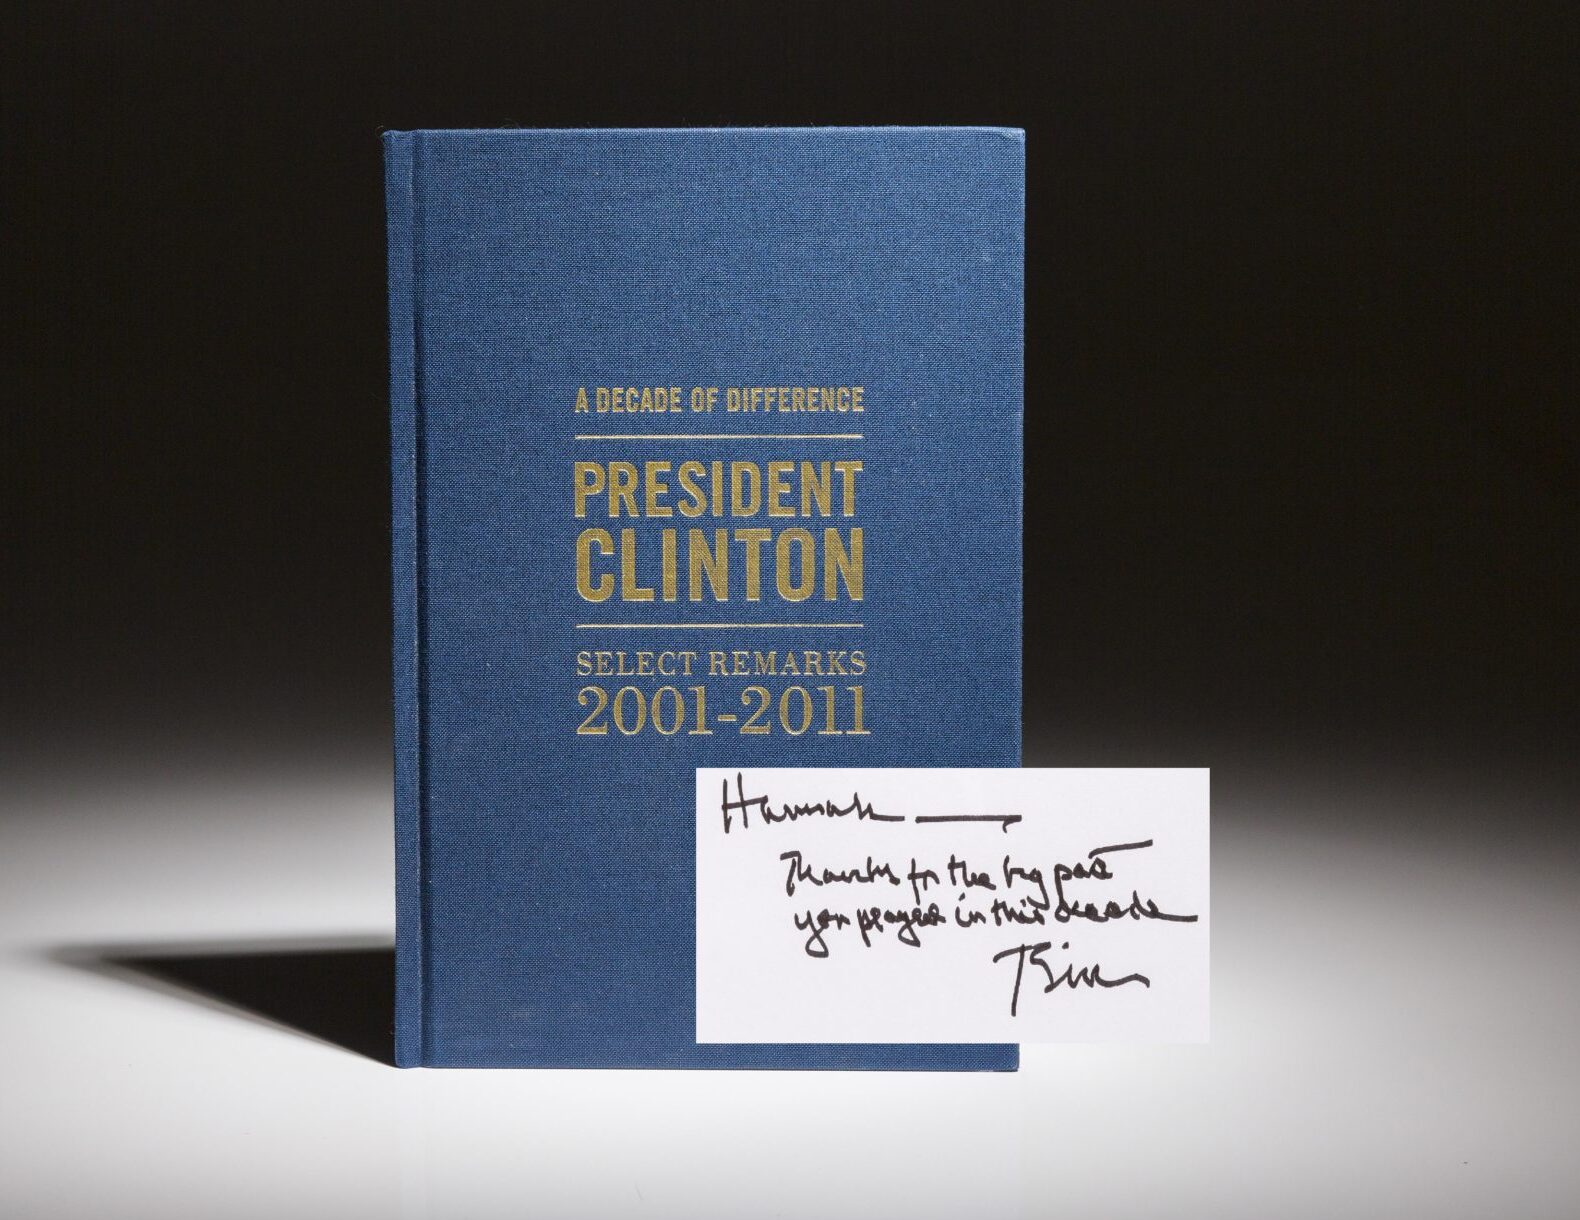 A DECADE OF DIFFERENCE
PRESIDENT
CLINTON
SELECT REMARKS
2001-2011
Hannah —
Thanks for the big part
you played in this decade
Bill